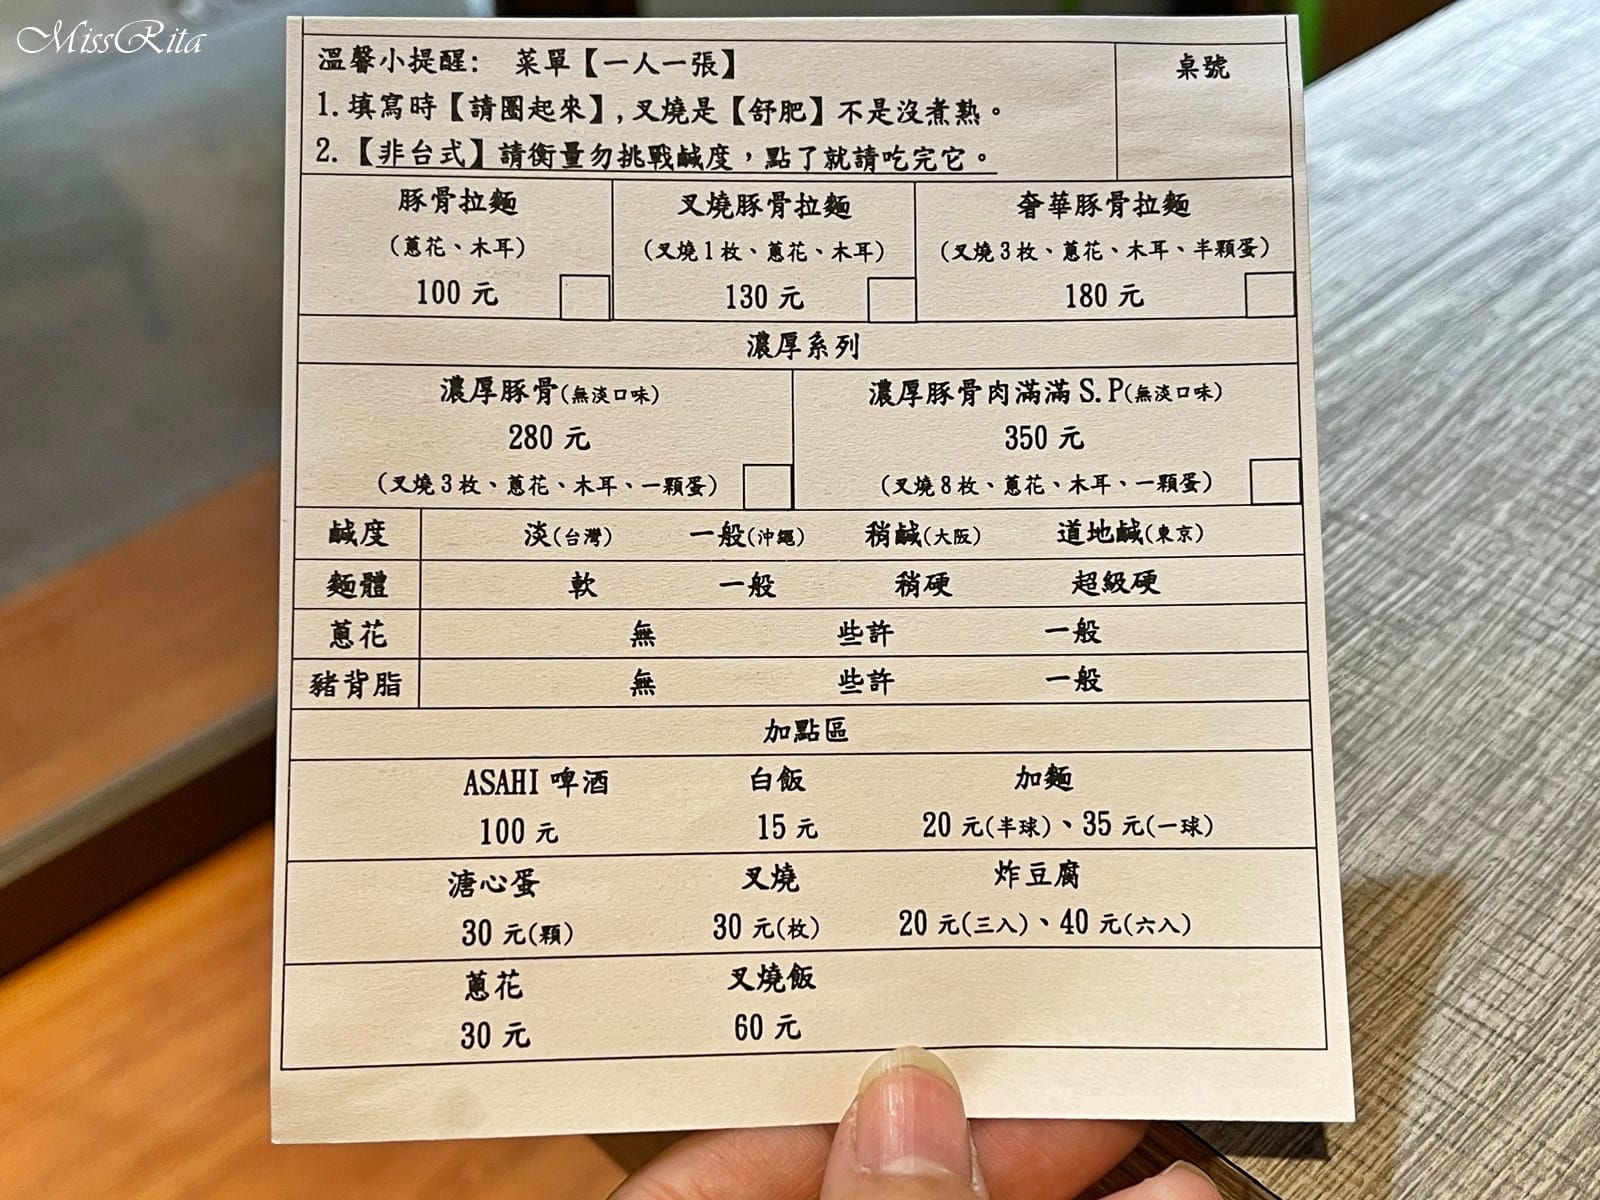 MissRita
溫馨小提醒: 菜單【一人一張】
桌號
1.填寫時【請圈起來】,叉燒是【舒肥】不是沒煮熟。
2.【非台式】請衡量勿挑戰鹹度,點了就請吃完它。
豚骨拉麵 叉燒豚骨拉麵 奢華豚骨拉麵
(蔥花、木耳) (叉燒1枚、蔥花、木耳) (叉燒3枚、蔥花、木耳、半顆蛋)
100元 130元 180元
濃厚系列
濃厚豚骨(無淡口味) 濃厚豚骨肉滿滿S.P(無淡口味)
280元 350元
(叉燒3枚、蔥花、木耳、一顆蛋) (叉燒8枚、蔥花、木耳、一顆蛋)
鹹度 淡(台灣) 一般(沖繩) 稍鹹(大阪) 道地鹹(東京)
麵體 軟 一般 稍硬 超級硬
蔥花 無 些許 一般
豬背脂 無 些許 一般
加點區
ASAHI啤酒 白飯 加麵
100元 15元 20元(半球)、35元(一球)
溏心蛋 叉燒 炸豆腐
30元(顆) 30元(枚) 20元(三入)、40元(六入)
蔥花 叉燒飯
30元 60元